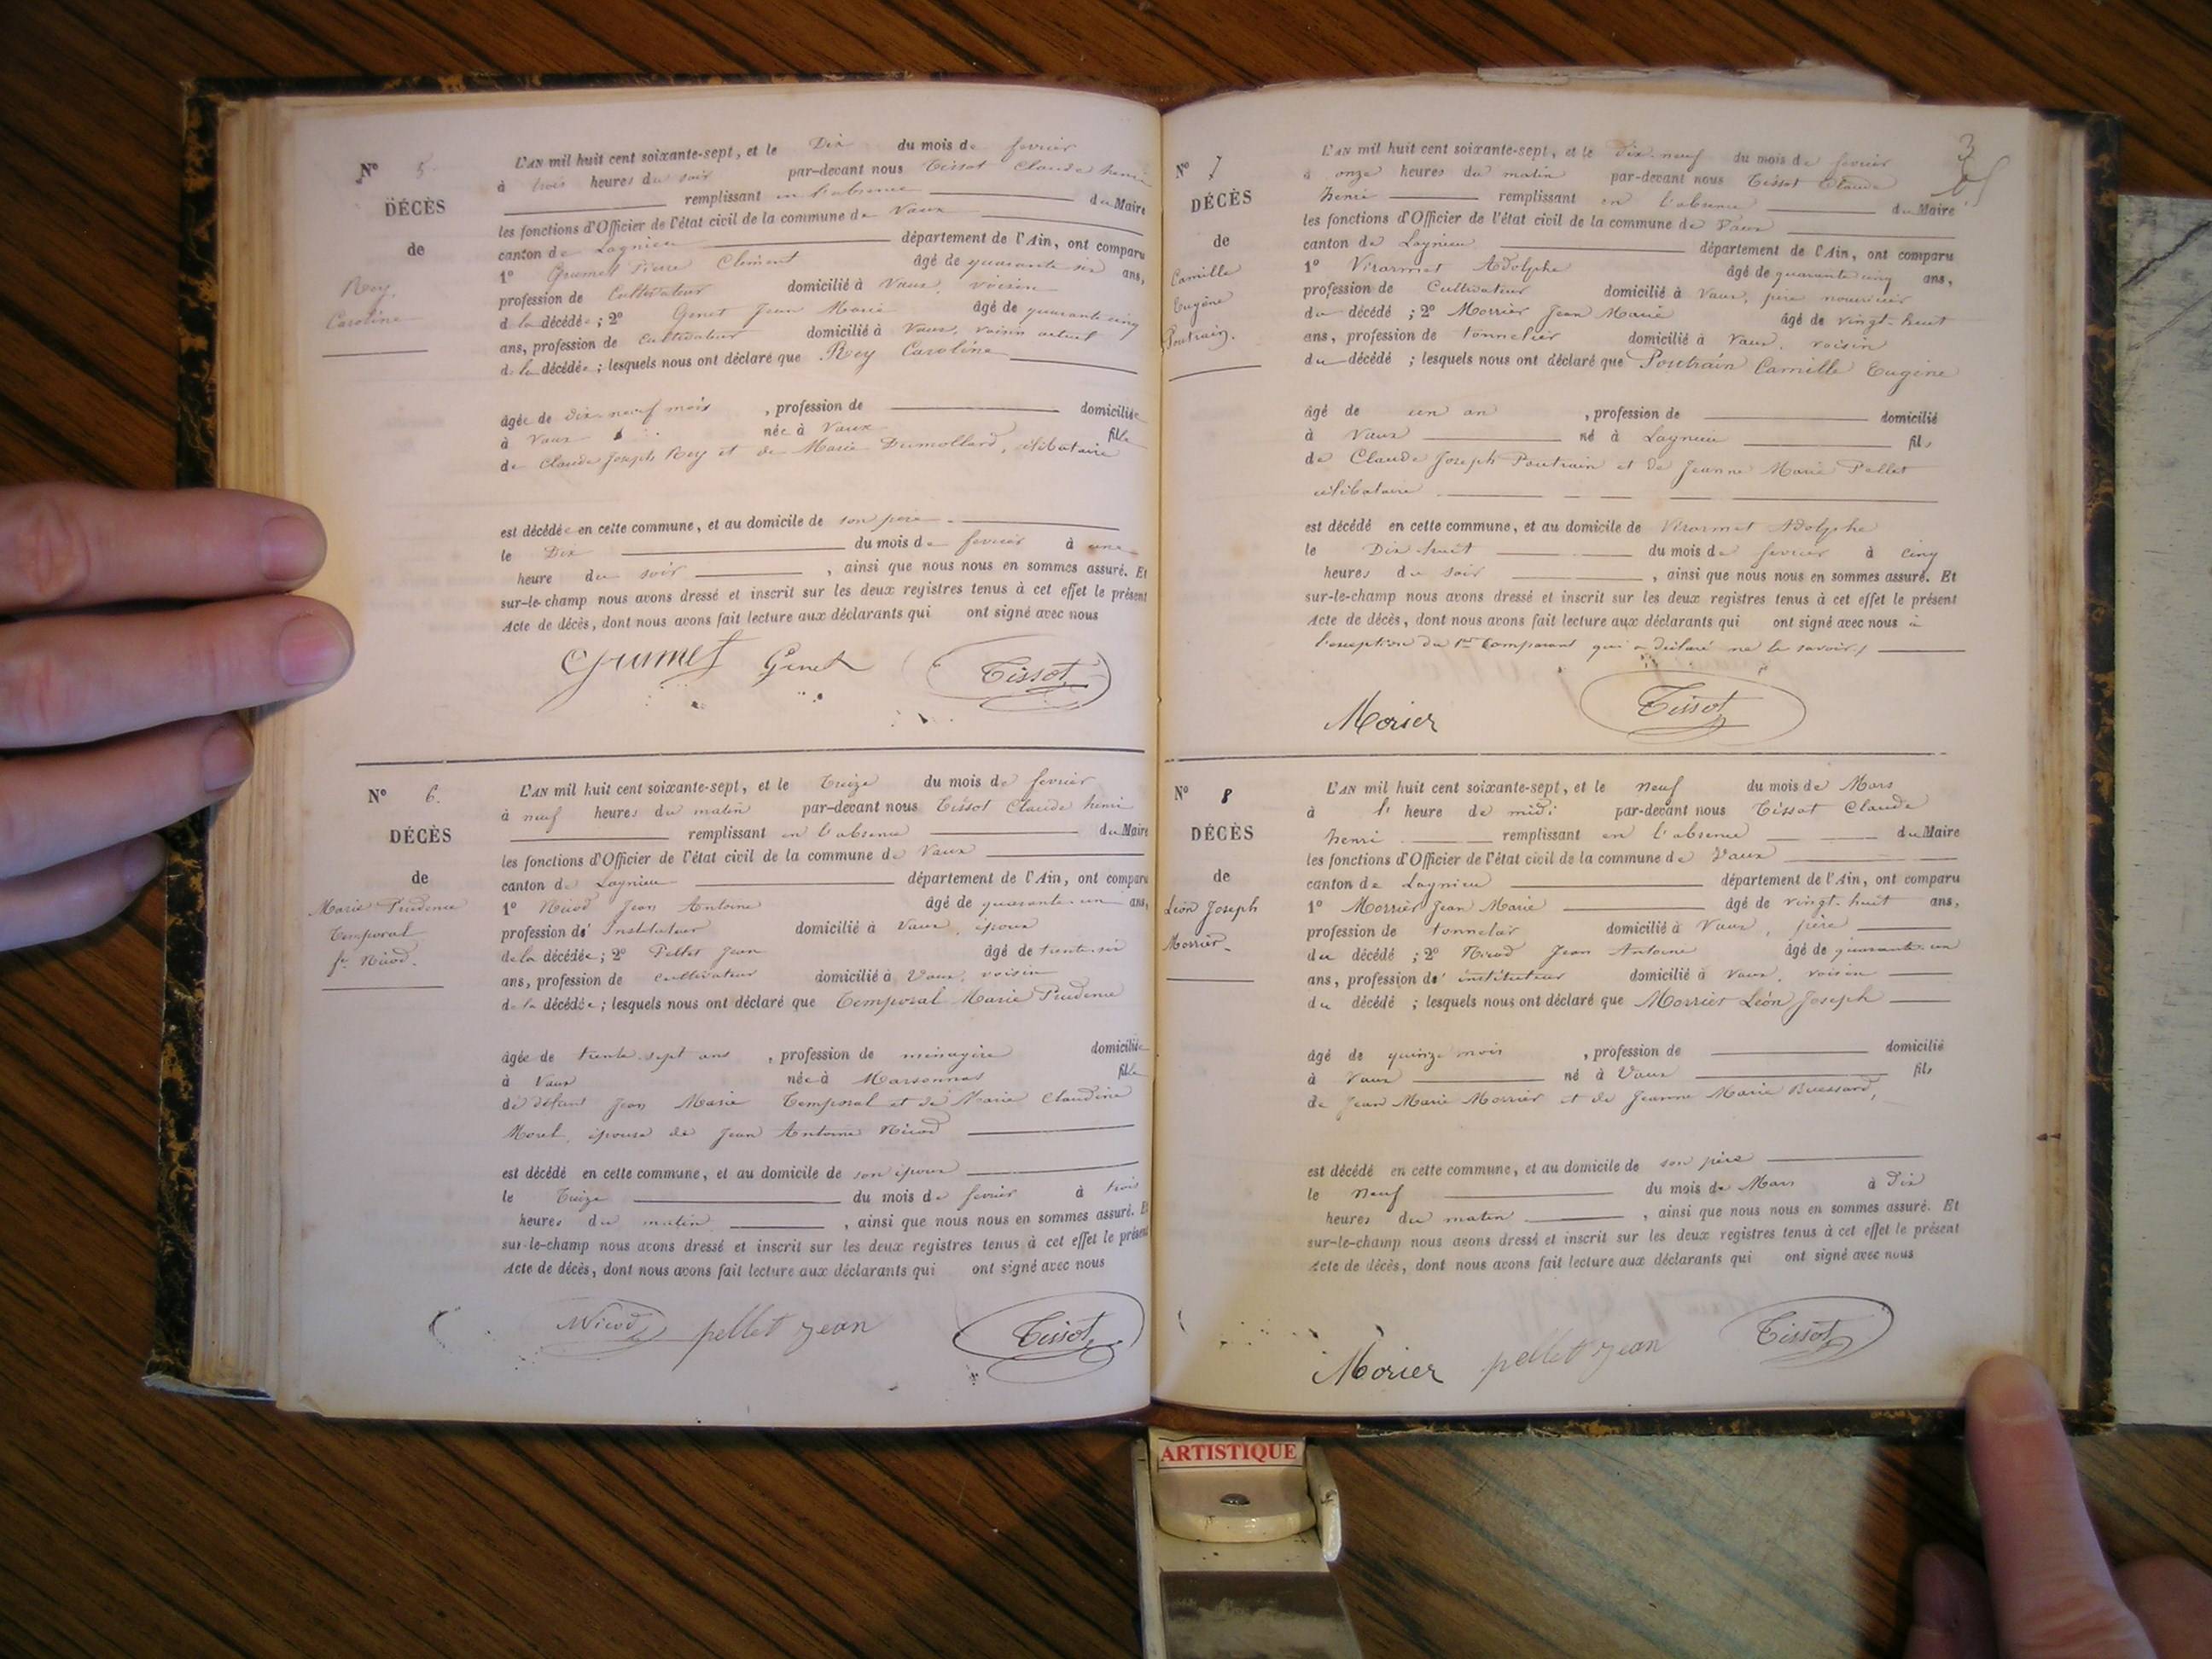 N° 5
DÉCÈS
de
Rey
Caroline
L'AN mil huit cent soixante-sept, et le Dix du mois de fevrier
à trois heures du soir par-devant nous Tissot Claude henri
remplissant en l'absence du Maire
les fonctions d'Officier de l'état civil de la commune de Vaux
canton de Lagnieu département de l'Ain, ont comparu
1° Grumet Pierre Clément âgé de quarante six ans,
profession de Cultivateur domicilié à Vaux, voisin
de la décédée ; 2° Genet Jean Marie âgé de quarante cinq
ans, profession de Cultivateur domicilié à Vaux, voisin actuel
de la décédée ; lesquels nous ont déclaré que Rey Caroline
âgée de dix-neuf mois , profession de domiciliée
à Vaux née à Vaux fille
de Claude Joseph Rey et de Marie Dumollard, célibataire
est décédée en cette commune, et au domicile de son père
le Dix du mois de fevrier à une
heure du soir , ainsi que nous nous en sommes assuré. Et
sur-le-champ nous avons dressé et inscrit sur les deux registres tenus à cet effet le présent
Acte de décès, dont nous avons fait lecture aux déclarants qui ont signé avec nous
Grumet Genet Tissot
N° 6.
DÉCÈS
de
Marie Prudence
Temporal
fe. Nicod.
L'AN mil huit cent soixante-sept, et le Treize du mois de fevrier
à neuf heures du matin par-devant nous Tissot Claude henri
remplissant en l'absence du Maire
les fonctions d'Officier de l'état civil de la commune de Vaux
canton de Lagnieu département de l'Ain, ont comparu
1° Nicod Jean Antoine âgé de quarante-un ans,
profession d' Instituteur domicilié à Vaux, époux
de la décédée ; 2° Pellet Jean âgé de trente-six
ans, profession de cultivateur domicilié à Vaux, voisin
de la décédée ; lesquels nous ont déclaré que Temporal Marie Prudence
âgée de trente-sept ans , profession de ménagère domiciliée
à Vaux née à Marsonnas fille
de défunt Jean Marie Temporal et de Marie Claudine
Morel, épouse de Jean Antoine Nicod
est décédé en cette commune, et au domicile de son époux
le Treize du mois de fevrier à trois
heures du matin , ainsi que nous nous en sommes assuré. Et
sur-le-champ nous avons dressé et inscrit sur les deux registres tenus à cet effet le présent
Acte de décès, dont nous avons fait lecture aux déclarants qui ont signé avec nous
Nicod pellet jean Tissot
3
N° 7
DÉCÈS
de
Camille
Eugène
Poutrain.
L'AN mil huit cent soixante-sept, et le dix-neuf du mois de fevrier
à onze heures du matin par-devant nous Tissot Claude
henri remplissant en l'absence du Maire
les fonctions d'Officier de l'état civil de la commune de Vaux
canton de Lagnieu département de l'Ain, ont comparu
1° Adolphe âgé de quarante cinq ans,
profession de Cultivateur domicilié à Vaux, père nourricier
du décédé ; 2° Morrier Jean Marie âgé de vingt-huit
ans, profession de tonnelier domicilié à Vaux, voisin
du décédé ; lesquels nous ont déclaré que Poutrain Camille Eugène
âgé de un an , profession de domicilié
à Vaux né à Lagnieu fils
de Claude Joseph Poutrain et de Jeanne Marie Pellet
célibataire
est décédé en cette commune, et au domicile de Adolphe
le Dix-huit du mois de fevrier à cinq
heures du soir , ainsi que nous nous en sommes assuré. Et
sur-le-champ nous avons dressé et inscrit sur les deux registres tenus à cet effet le présent
Acte de décès, dont nous avons fait lecture aux déclarants qui ont signé avec nous à
l'exception du 1er Comparant qui a déclaré ne le savoir
Morier Tissot
N° 8
DÉCÈS
de
Léon Joseph
Morrier
L'AN mil huit cent soixante-sept, et le neuf du mois de Mars
à l' heure de midi par-devant nous Tissot Claude
henri remplissant en l'absence du Maire
les fonctions d'Officier de l'état civil de la commune de Vaux
canton de Lagnieu département de l'Ain, ont comparu
1° Morrier Jean Marie âgé de vingt-huit ans,
profession de tonnelier domicilié à Vaux, père
du décédé ; 2° Nicod Jean Antoine âgé de quarante-un
ans, profession d' instituteur domicilié à Vaux, voisin
du décédé ; lesquels nous ont déclaré que Morrier Léon Joseph
âgé de quinze mois , profession de domicilié
à Vaux né à Vaux fils
de Jean Marie Morrier et de Jeanne Marie Buessard,
est décédé en cette commune, et au domicile de son père
le Neuf du mois de Mars à dix
heures du matin , ainsi que nous nous en sommes assuré. Et
sur-le-champ nous avons dressé et inscrit sur les deux registres tenus à cet effet le présent
Acte de décès, dont nous avons fait lecture aux déclarants qui ont signé avec nous
Morier pellet jean Tissot
ARTISTIQUE